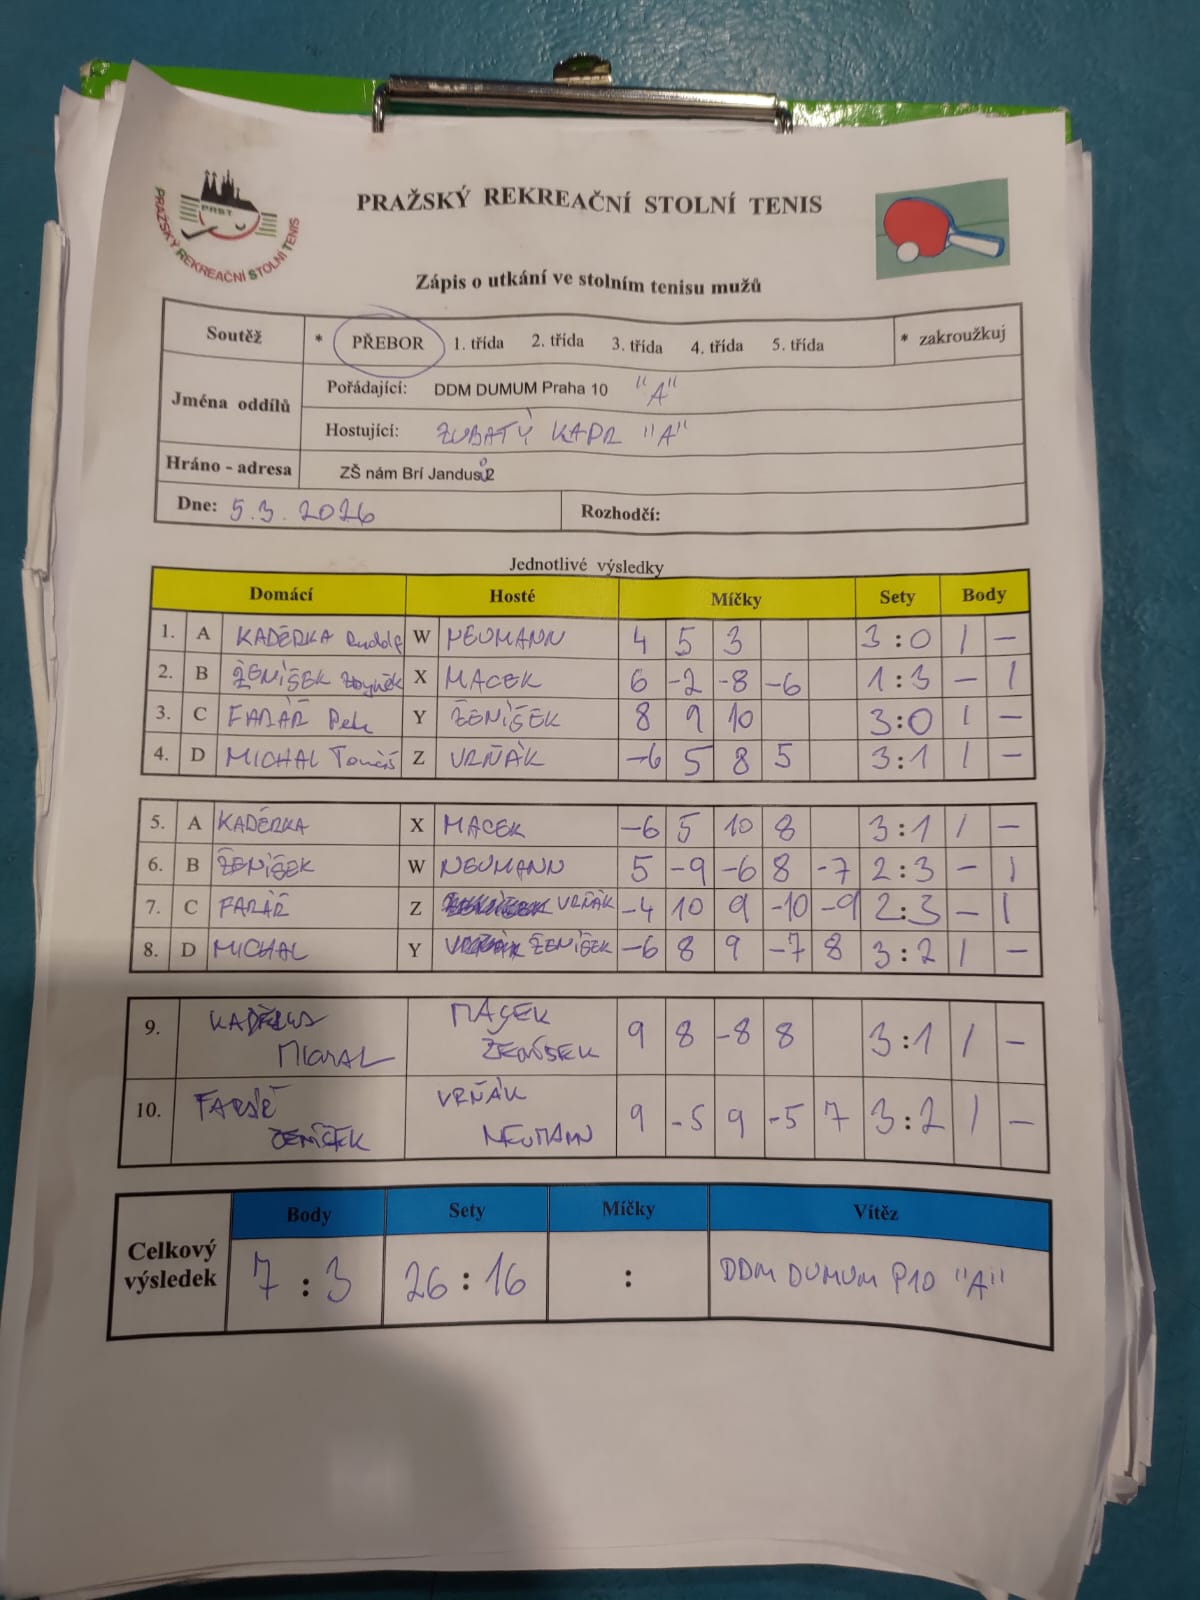 PRAŽSKÝ REKREAČNÍ STOLNÍ TENIS
PRST
PRAŽSKÝ REKREAČNÍ STOLNÍ TENIS
Zápis o utkání ve stolním tenisu mužů
Soutěž * PŘEBOR 1. třída 2. třída 3. třída 4. třída 5. třída * zakroužkuj
Jména oddílů
Pořádající: DDM DUMUM Praha 10 "A"
Hostující: ZUBATÝ KAPR "A"
Hráno - adresa ZŠ nám Brí Jandusů 2
Dne: 5.3.2026 Rozhodčí:
Jednotlivé výsledky
Domácí Hosté Míčky Sety Body
1. A KADĚRKA Rudolf W NEUMANN 4 5 3 3:0 1 -
2. B ŽENÍŠEK Zbyněk X MACEK 6 -2 -8 -6 1:3 - 1
3. C FARÁŘ Petr Y ŽENÍŠEK 8 9 10 3:0 1 -
4. D MICHAL Tomáš Z VRŇÁK -6 5 8 5 3:1 1 -
5. A KADĚRKA X MACEK -6 5 10 8 3:1 1 -
6. B ŽENÍŠEK W NEUMANN 5 -9 -6 8 -7 2:3 - 1
7. C FARÁŘ Z VRŇÁK -4 10 9 -10 -9 2:3 - 1
8. D MICHAL Y ŽENÍŠEK -6 8 9 -7 8 3:2 1 -
9. KADĚRKA MACEK 9 8 -8 8 3:1 1 -
MICHAL ŽENÍŠEK
10. FARÁŘ VRŇÁK 9 -5 9 -5 7 3:2 1 -
ŽENÍŠEK NEUMANN
Celkový výsledek
Body Sety Míčky Vítěz
7:3 26:16 : DDM DUMUM P10 "A"